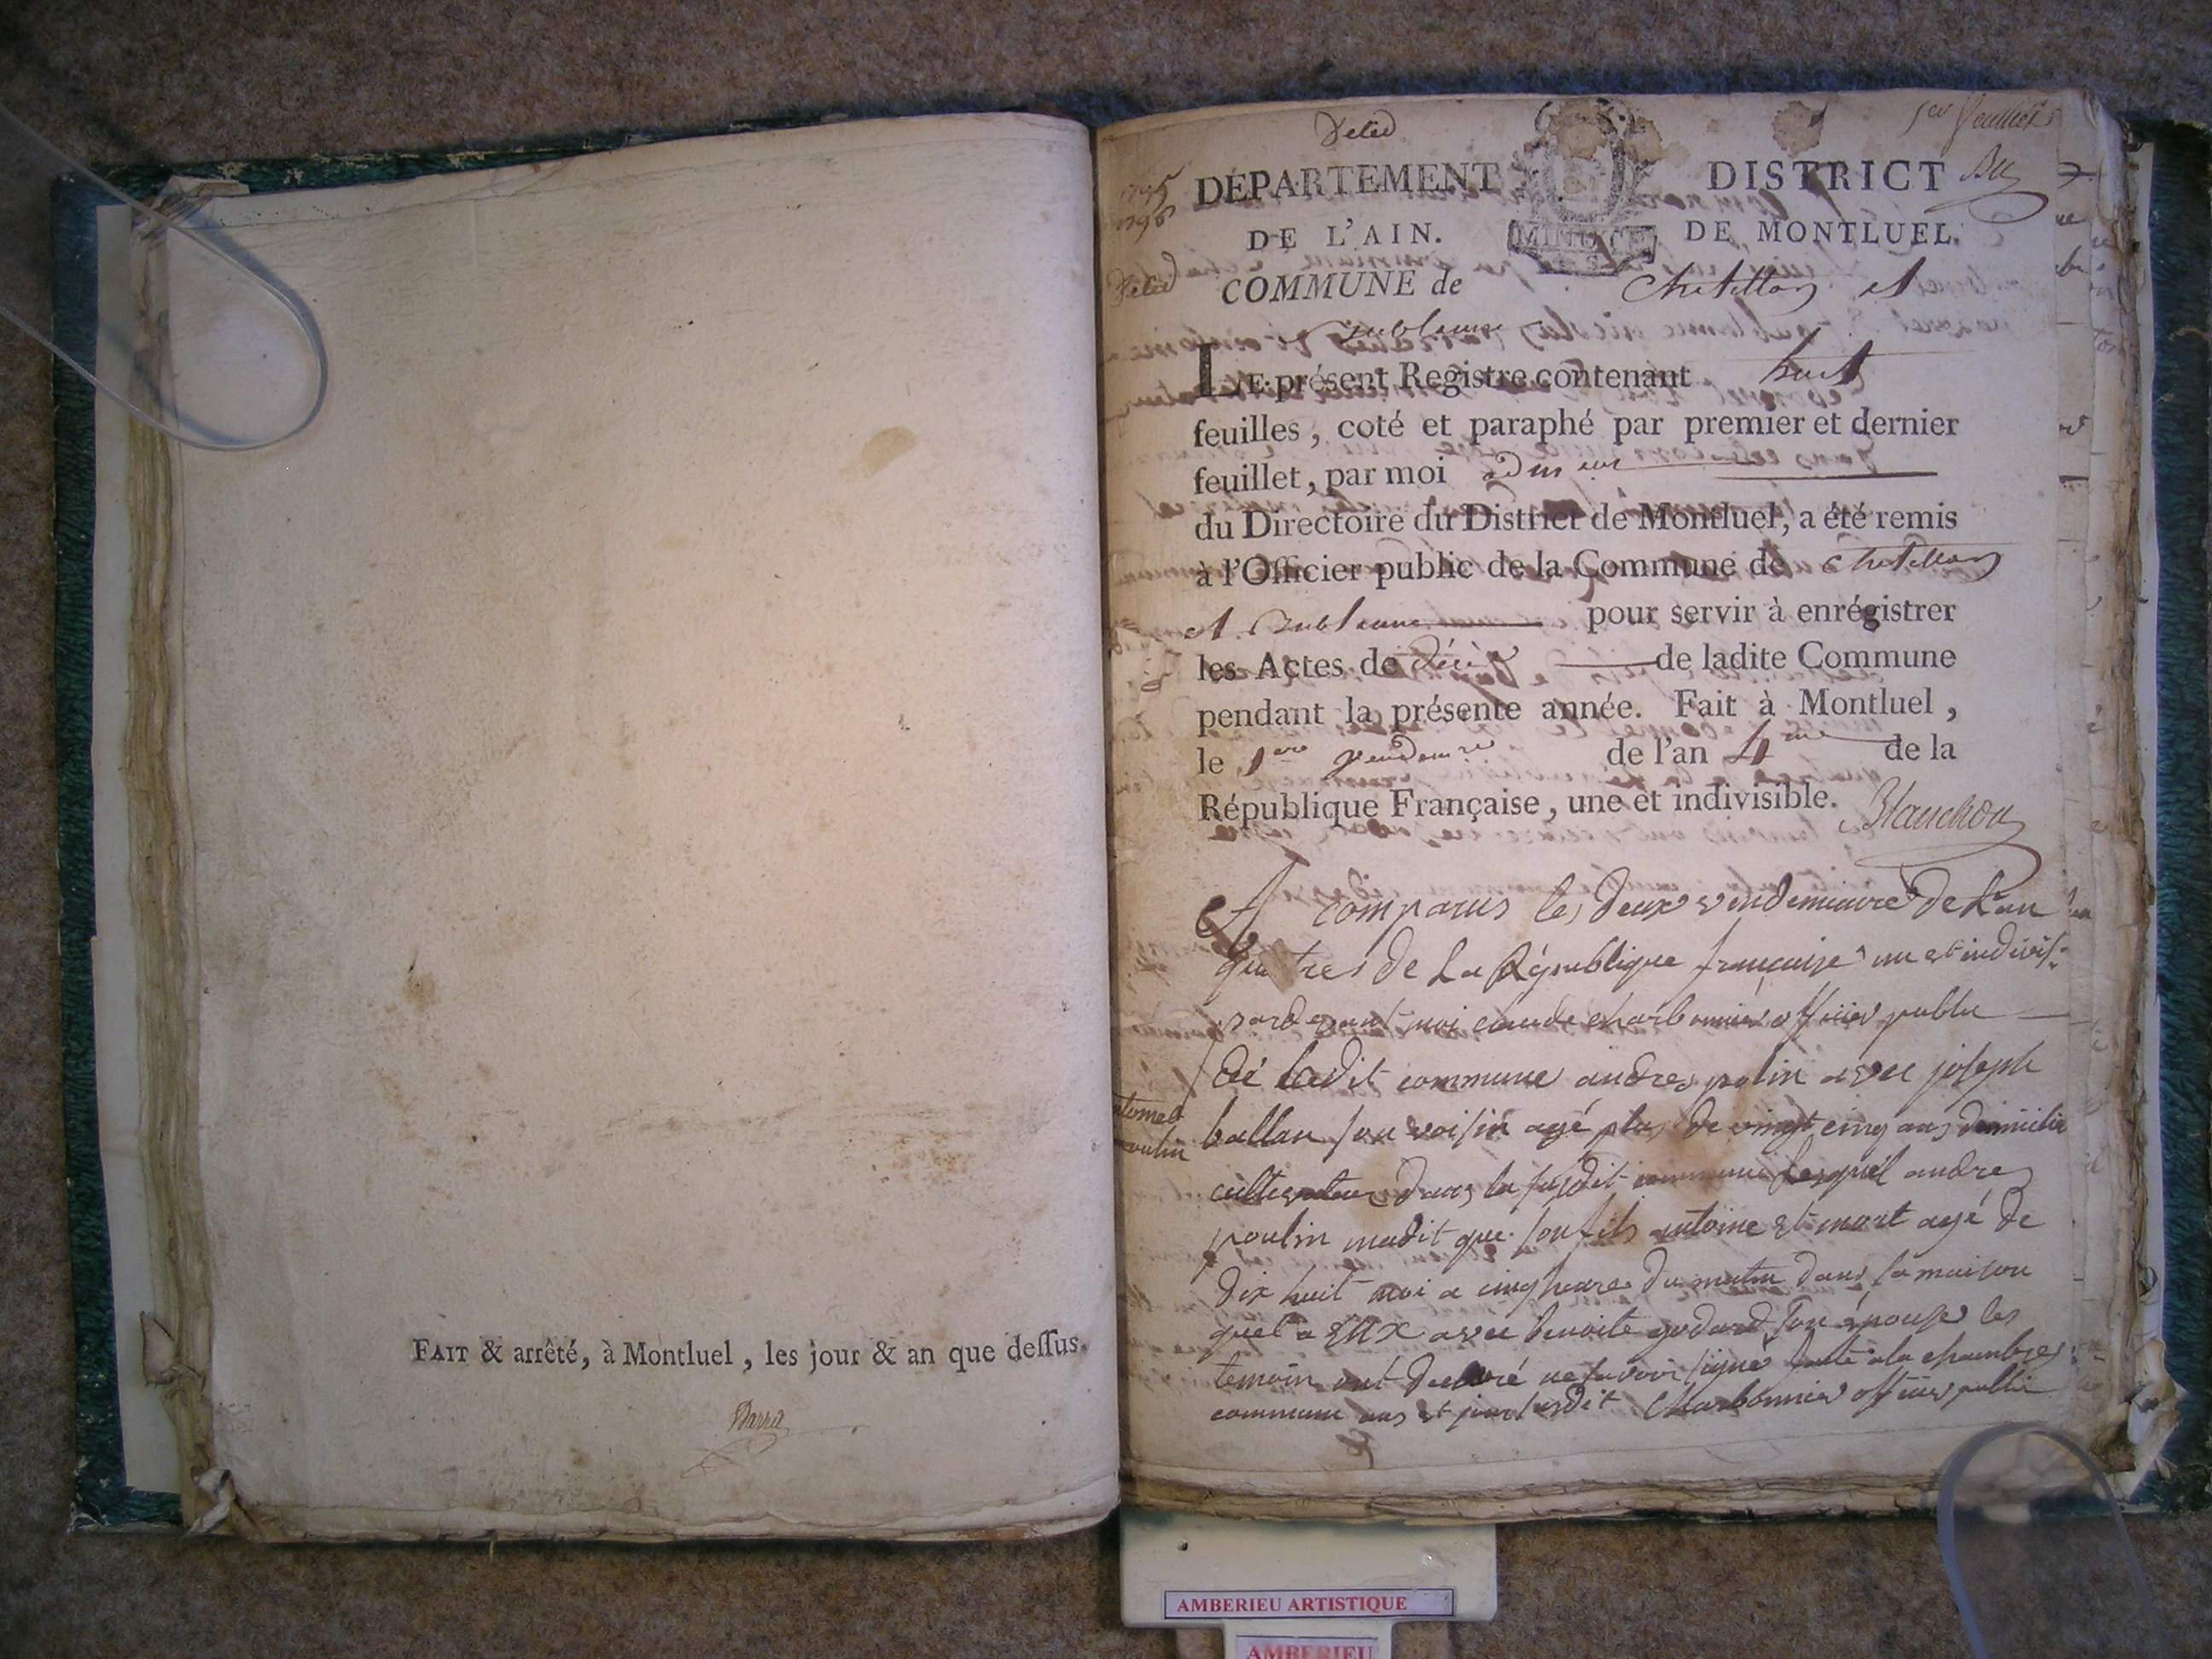 FAIT & arrêté, à Montluel, les jour & an que dessus.
Deced
1er feuillet
1795
1796
DÉPARTEMENT
DE L'AIN.
DISTRICT
DE MONTLUEL.
COMMUNE de Chatillon et
LE présent Registre contenant huit
feuilles, coté et paraphé par premier et dernier
feuillet, par moi
du Directoire du District de Montluel, a été remis
à l'Officier public de la Commune de Chatillon
et pour servir à enrégistrer
les Actes de décès de ladite Commune
pendant la présente année. Fait à Montluel,
le 1er vendemre de l'an 4me de la
République Française, une et indivisible.
Blanchon
A comparus les deux vendemiaire de l'an
quatres de La République française un et indivis
pardevant moi claude charbonnier officier public
de ladit commune andre polin avec joseph
ballan son voisin agé plus de vingt cinq ans domicilié
cultivateur dans la susdit commune Lesquel andre
poulin madit que son fils antoine et mort agé de
dix huit moi a cinq heures du matin dans sa maison
quel a EUX avec benoite godard son épouse les
temoin ont declaré ne savoir signé fait a la chambre
commune ans et jour susdit Charbonnier officier public
AMBERIEU ARTISTIQUE
AMBERIEU